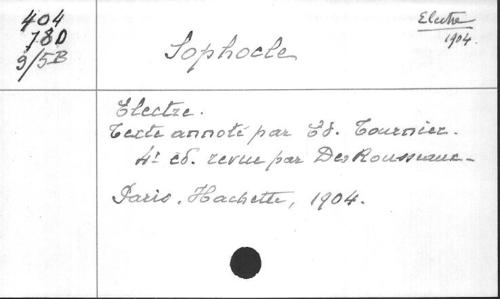 404
78D
9/5B
Electre
1904.
Sophocle
Electre.
Texte annoté par Ed. Tournier.
4e éd. revue par Desrousseaux
Paris, Hachette, 1904.